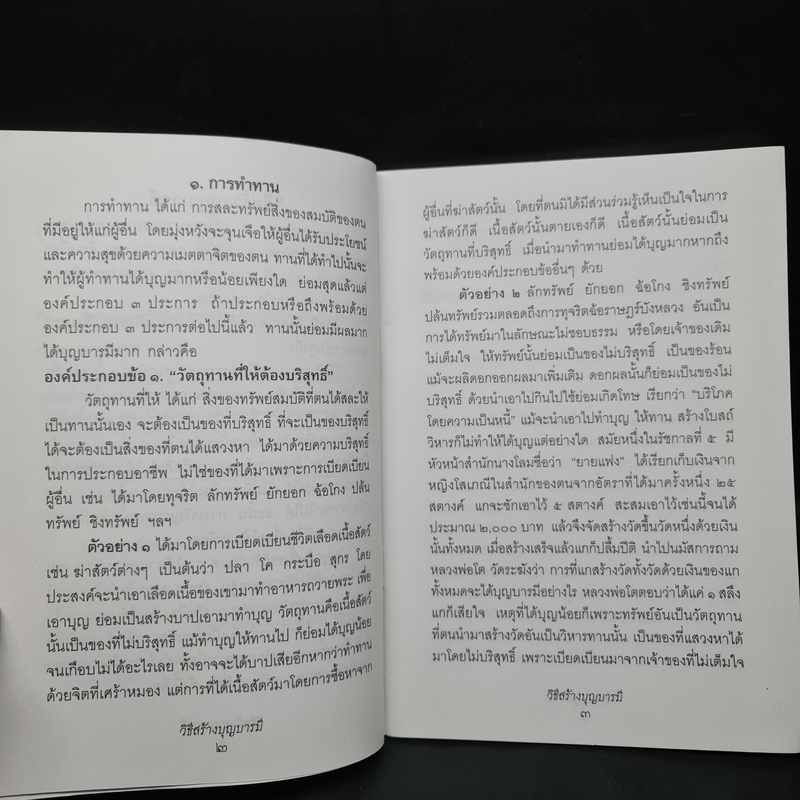 ๑. การทำทาน
การทำทาน ได้แก่ การสละทรัพย์สิ่งของสมบัติของตน
ที่มีอยู่ให้แก่ผู้อื่น โดยมุ่งหวังจะจุนเจือให้ผู้อื่นได้รับประโยชน์
และความสุขด้วยความเมตตาจิตของตน ทานที่ได้ทำไปนั้นจะ
ทำให้ผู้ทำทานได้บุญมากหรือน้อยเพียงใด ย่อมสุดแล้วแต่
องค์ประกอบ ๓ ประการ ถ้าประกอบหรือถึงพร้อมด้วย
องค์ประกอบ ๓ ประการต่อไปนี้แล้ว ทานนั้นย่อมมีผลมาก
ได้บุญบารมีมาก กล่าวคือ
องค์ประกอบข้อ ๑. “วัตถุทานที่ให้ต้องบริสุทธิ์”
วัตถุทานที่ให้ ได้แก่ สิ่งของทรัพย์สมบัติที่ตนได้สละให้
เป็นทานนั้นเอง จะต้องเป็นของที่บริสุทธิ์ ที่จะเป็นของบริสุทธิ์
ได้จะต้องเป็นสิ่งของที่ตนได้แสวงหา ได้มาด้วยความบริสุทธิ์
ในการประกอบอาชีพ ไม่ใช่ของที่ได้มาเพราะการเบียดเบียน
ผู้อื่น เช่น ได้มาโดยทุจริต ลักทรัพย์ ยักยอก ฉ้อโกง ปล้น
ทรัพย์ ชิงทรัพย์ ฯลฯ
ตัวอย่าง ๑ ได้มาโดยการเบียดเบียนชีวิตเลือดเนื้อสัตว์
เช่น ฆ่าสัตว์ต่างๆ เป็นต้นว่า ปลา โค กระบือ สุกร โดย
ประสงค์จะนำเอาเลือดเนื้อของเขามาทำอาหารถวายพระ เพื่อ
เอาบุญ ย่อมเป็นสร้างบาปเอามาทำบุญ วัตถุทานคือเนื้อสัตว์
นั้นเป็นของที่ไม่บริสุทธิ์ แม้ทำบุญให้ทานไป ก็ย่อมได้บุญน้อย
จนเกือบไม่ได้อะไรเลย ทั้งอาจจะได้บาปเสียอีกหากว่าทำทาน
ด้วยจิตที่เศร้าหมอง แต่การที่ได้เนื้อสัตว์มาโดยการซื้อหาจาก
วิธีสร้างบุญบารมี
๒
ผู้อื่นที่ฆ่าสัตว์นั้น โดยที่ตนมิได้มีส่วนร่วมรู้เห็นเป็นใจในการ
ฆ่าสัตว์ก็ดี เนื้อสัตว์นั้นตายเองก็ดี เนื้อสัตว์นั้นย่อมเป็น
วัตถุทานที่บริสุทธิ์ เมื่อนำมาทำทานย่อมได้บุญมากหากถึง
พร้อมด้วยองค์ประกอบข้ออื่นๆ ด้วย
ตัวอย่าง ๒ ลักทรัพย์ ยักยอก ฉ้อโกง ชิงทรัพย์
ปล้นทรัพย์รวมตลอดถึงการทุจริตฉ้อราษฎร์บังหลวง อันเป็น
การได้ทรัพย์มาในลักษณะไม่ชอบธรรม หรือโดยเจ้าของเดิม
ไม่เต็มใจ ให้ทรัพย์นั้นย่อมเป็นของไม่บริสุทธิ์ เป็นของร้อน
แม้จะผลิดอกออกผลมาเพิ่มเติม ดอกผลนั้นก็ย่อมเป็นของไม่
บริสุทธิ์ ด้วยนำเอาไปกินไปใช้ย่อมเกิดโทษ เรียกว่า “บริโภค
โดยความเป็นหนี้” แม้จะนำเอาไปทำบุญ ให้ทาน สร้างโบสถ์
วิหารก็ไม่ทำให้ได้บุญแต่อย่างใด สมัยหนึ่งในรัชกาลที่ ๕ มี
หัวหน้าสำนักนางโลมชื่อว่า “ยายแฟง” ได้เรียกเก็บเงินจาก
หญิงโสเภณีในสำนักของตนจากอัตราที่ได้มาครั้งหนึ่ง ๒๕
สตางค์ แกจะชักเอาไว้ ๕ สตางค์ สะสมเอาไว้เช่นนี้จนได้
ประมาณ ๒,๐๐๐ บาท แล้วจึงจัดสร้างวัดขึ้นวัดหนึ่งด้วยเงิน
นั้นทั้งหมด เมื่อสร้างเสร็จแล้วแกก็ปลื้มปีติ นำไปนมัสการถาม
หลวงพ่อโต วัดระฆังว่า การที่แกสร้างวัดทั้งวัดด้วยเงินของแก
ทั้งหมดจะได้บุญบารมีอย่างไร หลวงพ่อโตตอบว่าได้แค่ ๑ สลึง
แกก็เสียใจ เหตุที่ได้บุญน้อยก็เพราะทรัพย์อันเป็นวัตถุทาน
ที่ตนนำมาสร้างวัดอันเป็นวิหารทานนั้น เป็นของที่แสวงหาได้
มาโดยไม่บริสุทธิ์ เพราะเบียดเบียนมาจากเจ้าของที่ไม่เต็มใจ
วิธีสร้างบุญบารมี
๓